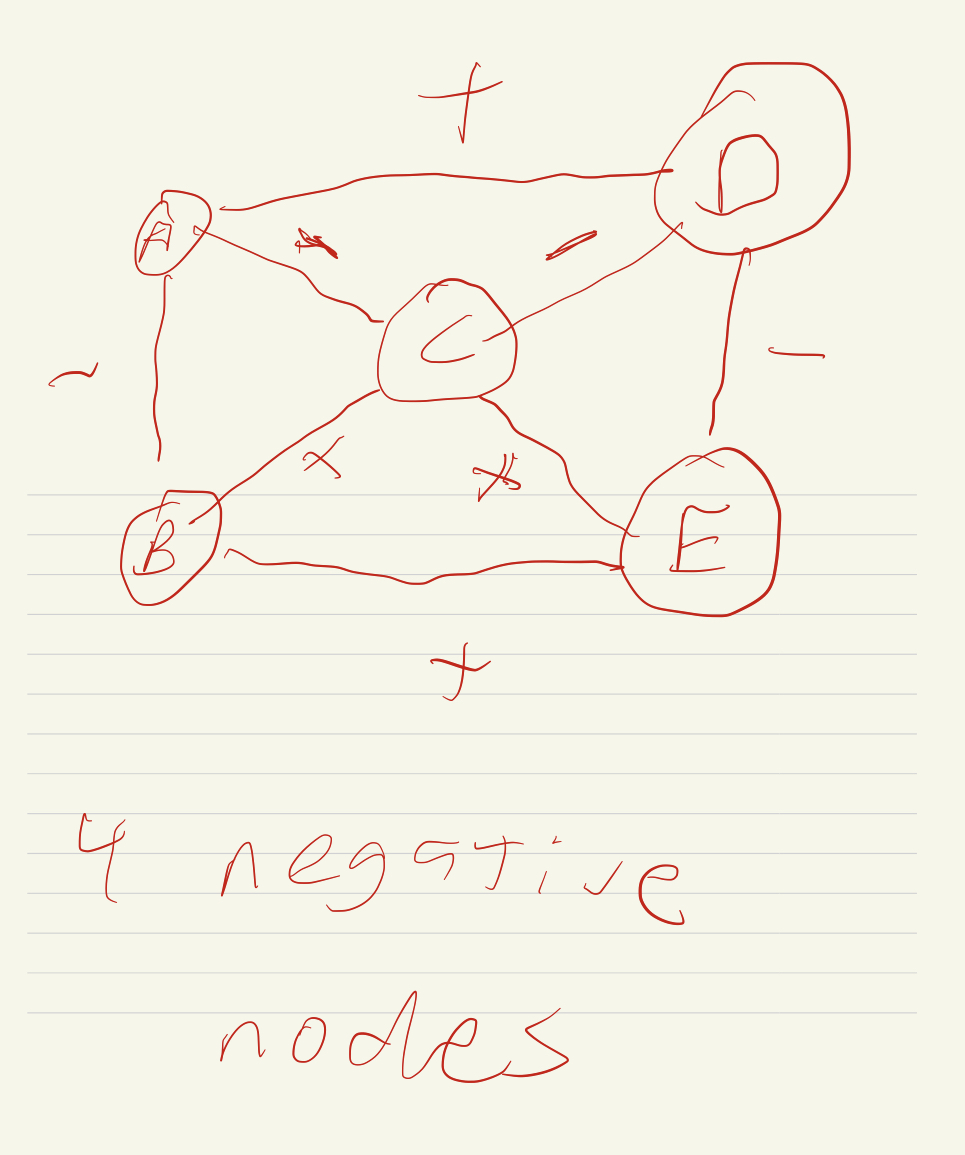 +
D
A
-
C
~
-
B
x
E
+
4 negative
nodes